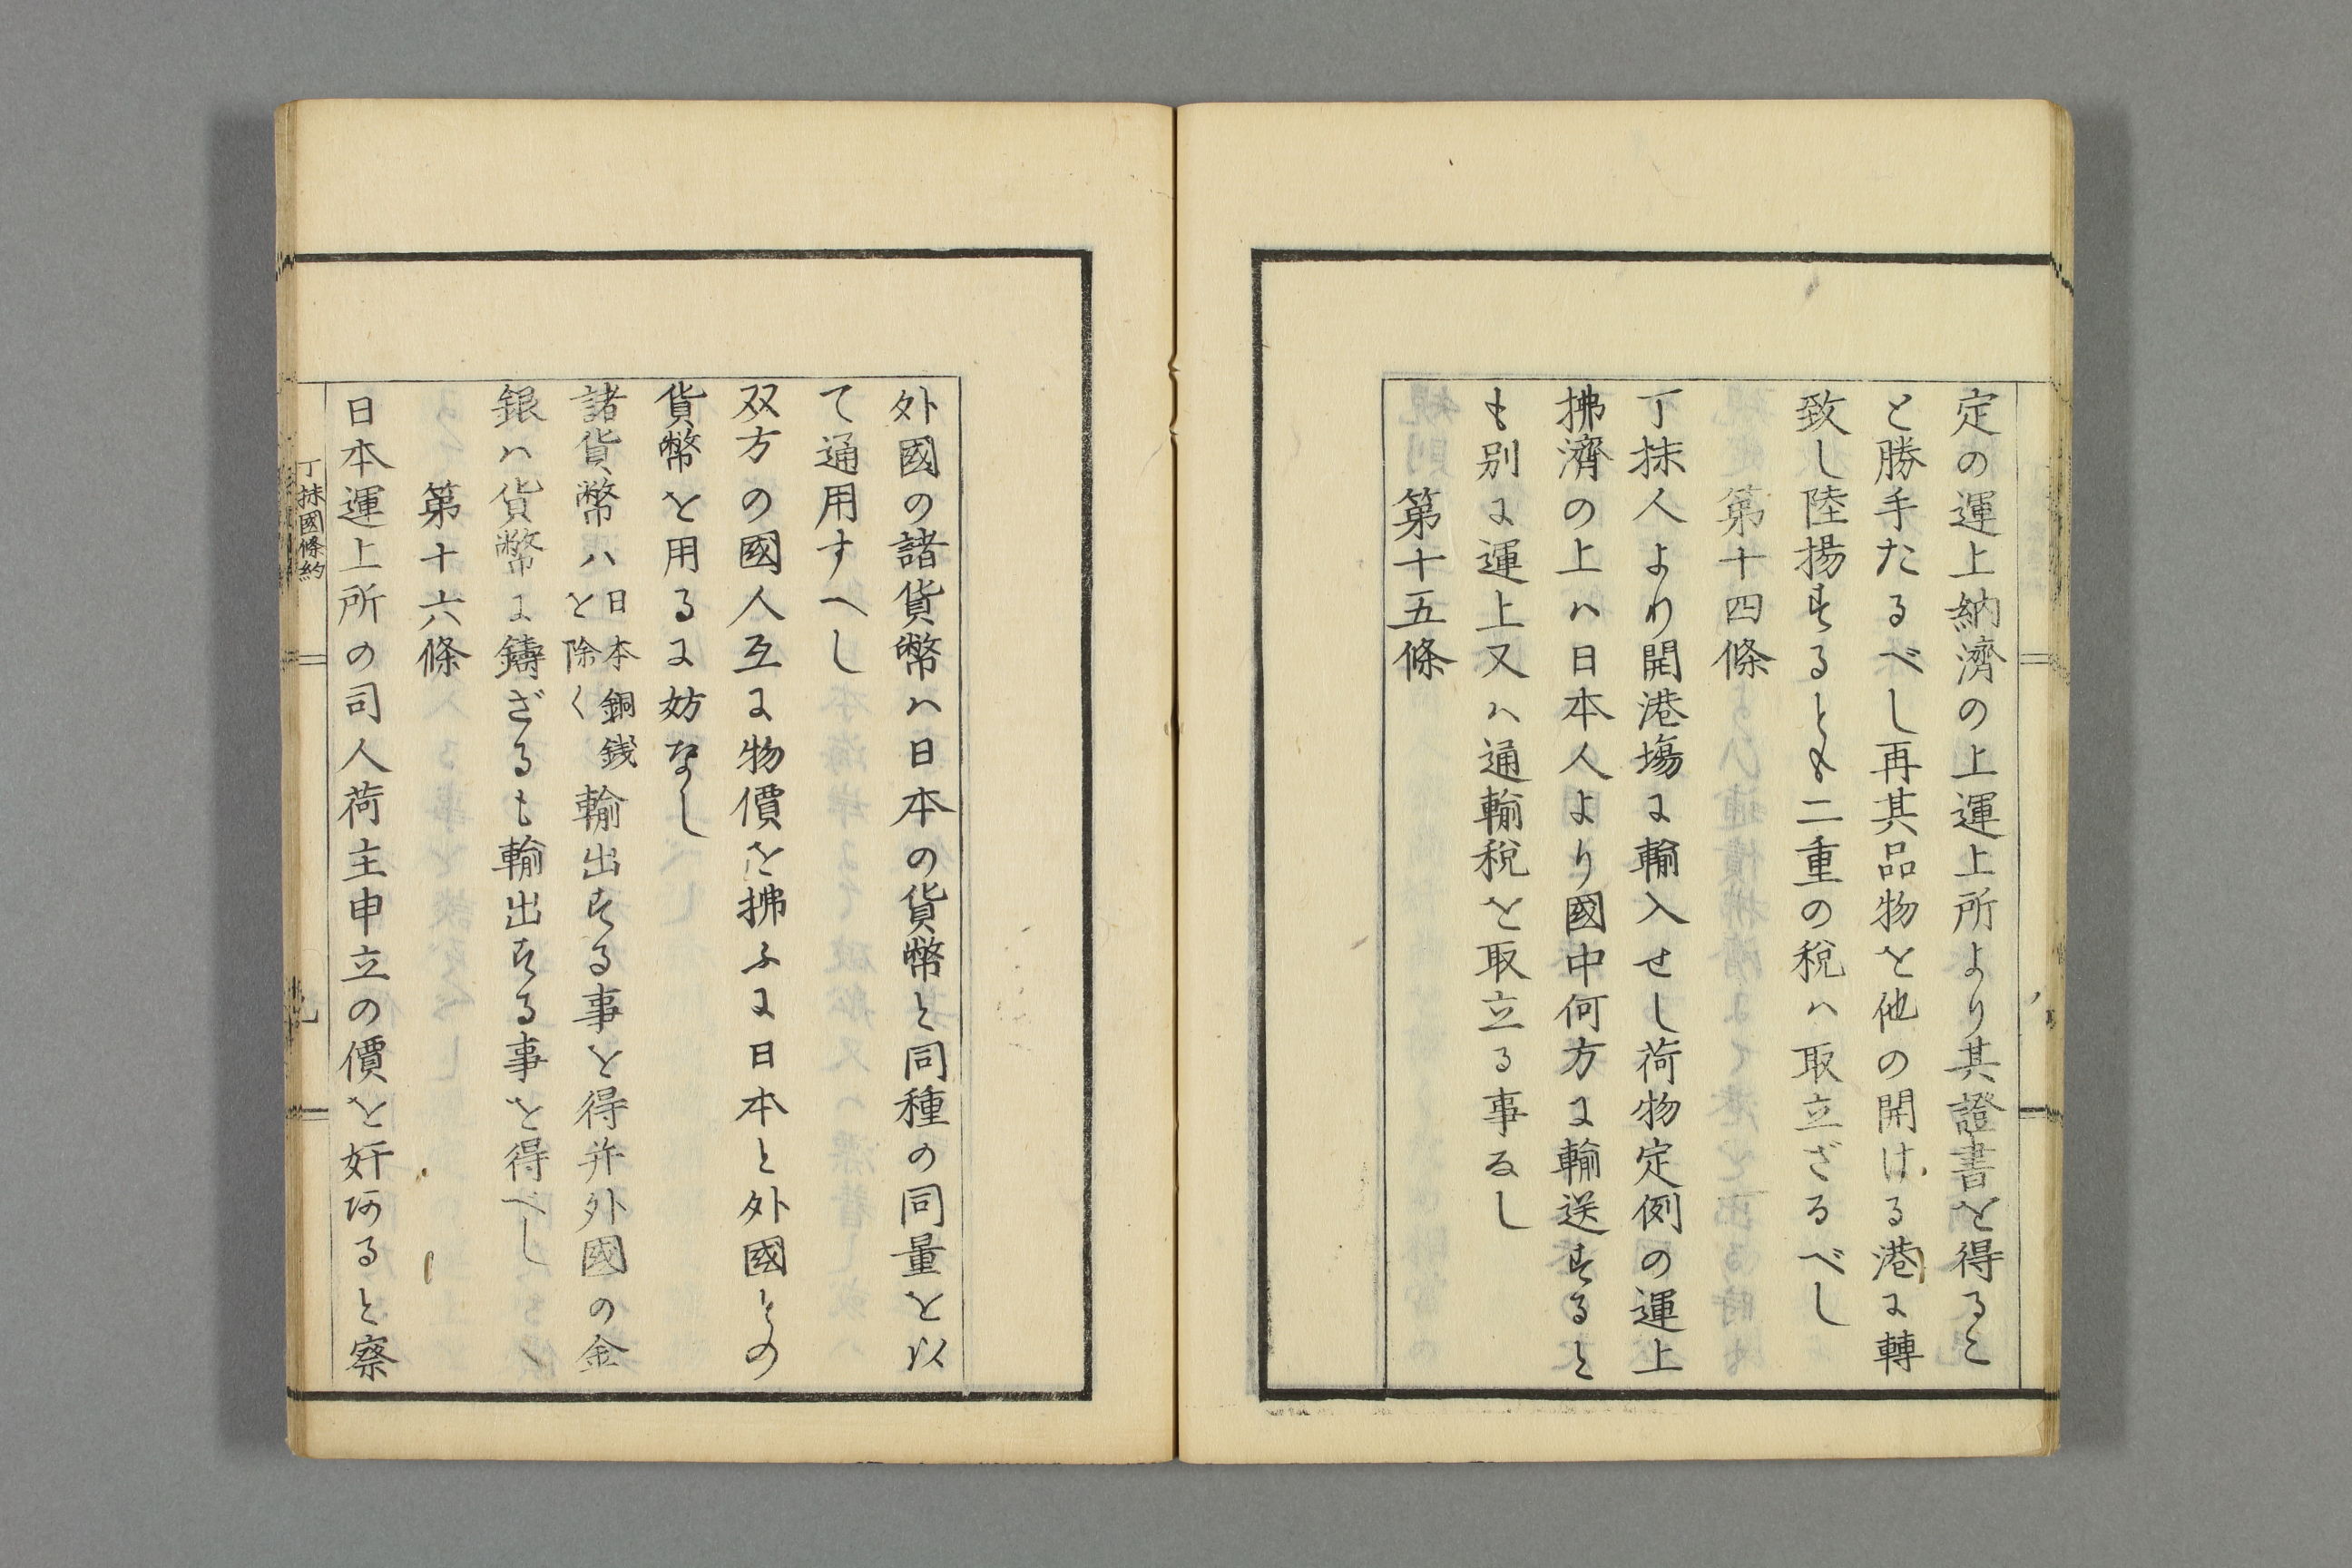 定の運上納濟の上運上所より其證書を得るこ
と勝手たるべし再其品物を他の開ける港に轉
致し陸揚するとも二重の税ハ取立ざるべし
第十四條
丁抹人より開港塲に輸入せし荷物定例の運上
拂濟の上ハ日本人より國中何方に輸送すると
も別に運上又ハ通輸税を取立る事なし
第十五條
外國の諸貨幣ハ日本の貨幣と同種の同量を以
て通用すへし
双方の國人互に物價を拂ふに日本と外國との
貨幣を用るに妨なし
諸貨幣ハ日本銅銭を除く輸出する事を得并外國の金
銀ハ貨幣に鑄ざるも輸出する事を得べし
第十六條
日本運上所の司人荷主申立の價を奸ありと察
丁抹國條約